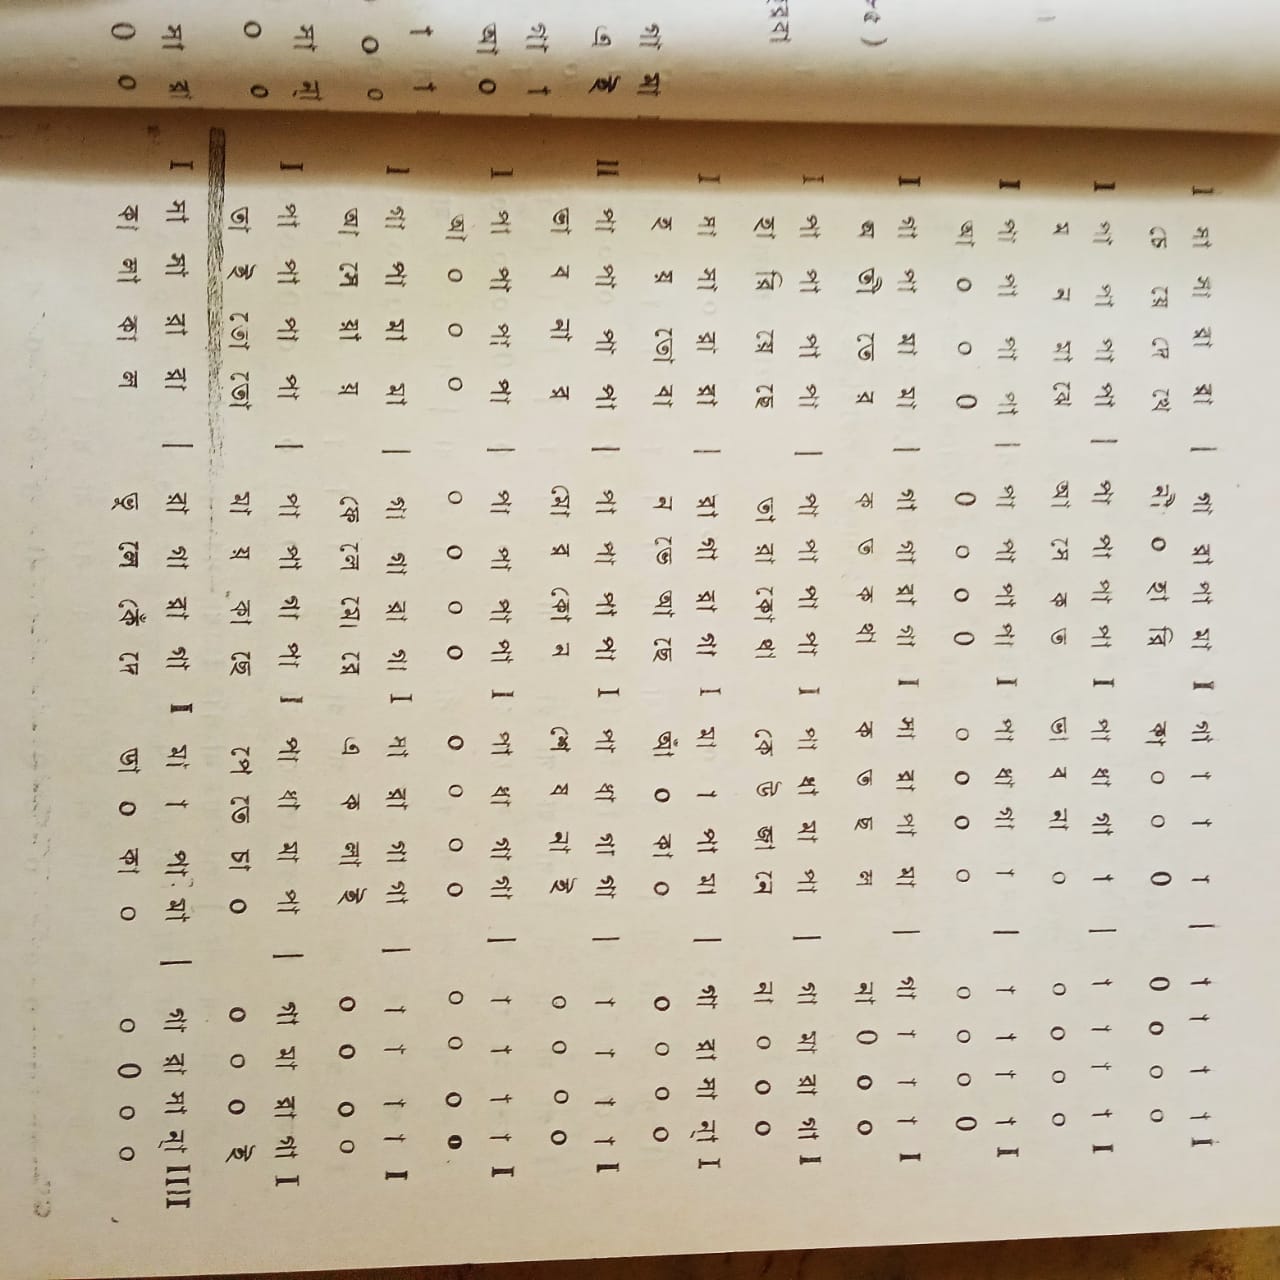 ৮৫ )
গা মা
এ ই
গা †
আ ০
সা ন্‌া
০ ০
সা রা
০ ০
I সা সা রা রা | গা রা পা মা I গা † † † | † † † † I
চে য়ে দে খে নী ০ হা রি কা ০ ০ ০ ০ ০ ০ ০
I পা পা পা পা | পা পা পা পা I পা ধা গা † | † † † † I
ম ন মা ঝে আ সে ক ত ভা ব না ০ ০ ০ ০ ০
I পা পা পা পা | পা পা পা পা I পা ধা গা † | † † † † I
আ ০ ০ ০ ০ ০ ০ ০ ০ ০ ০ ০ ০ ০ ০ ০
I গা পা মা মা | গা গা রা গা I সা রা পা মা | গা † † † I
অ তী তে র ক ত ক থা ক ত ছ ল না ০ ০ ০
I পা পা পা পা | পা পা পা পা I পা ধা মা পা | গা মা রা গা I
হা রি য়ে ছে তা রা কো থা কে উ জা নে না ০ ০ ০
I সা সা রা রা | রা গা রা গা I মা † পা মা | গা রা সা ন্‌া I
হ য় তো বা ন ভে আ ছে আঁ ০ কা ০ ০ ০ ০ ০
II পা পা পা পা | পা পা পা পা I পা ধা গা গা | † † † † I
ভা ব না র মো র কো ন শে ষ না ই ০ ০ ০ ০
I পা পা পা পা | পা পা পা পা I পা ধা গা গা | † † † † I
আ ০ ০ ০ ০ ০ ০ ০ ০ ০ ০ ০ ০ ০ ০ ০
I গা পা মা মা | গা গা রা গা I সা রা গা গা | † † † † I
আ সে রা য় ফে লে মো রে এ ক লা ই ০ ০ ০ ০
I পা পা পা পা | পা পা গা পা I পা ধা মা পা | গা মা রা গা I
তা ই তো তো মা র কা ছে পে তে চা ০ ০ ০ ০ ই
I সা সা রা রা | রা গা রা গা I মা † পা মা | গা রা সা ন্‌া IIII
কা লা কা ল ভু লে কেঁ দে ভা ০ কা ০ ০ ০ ০ ০